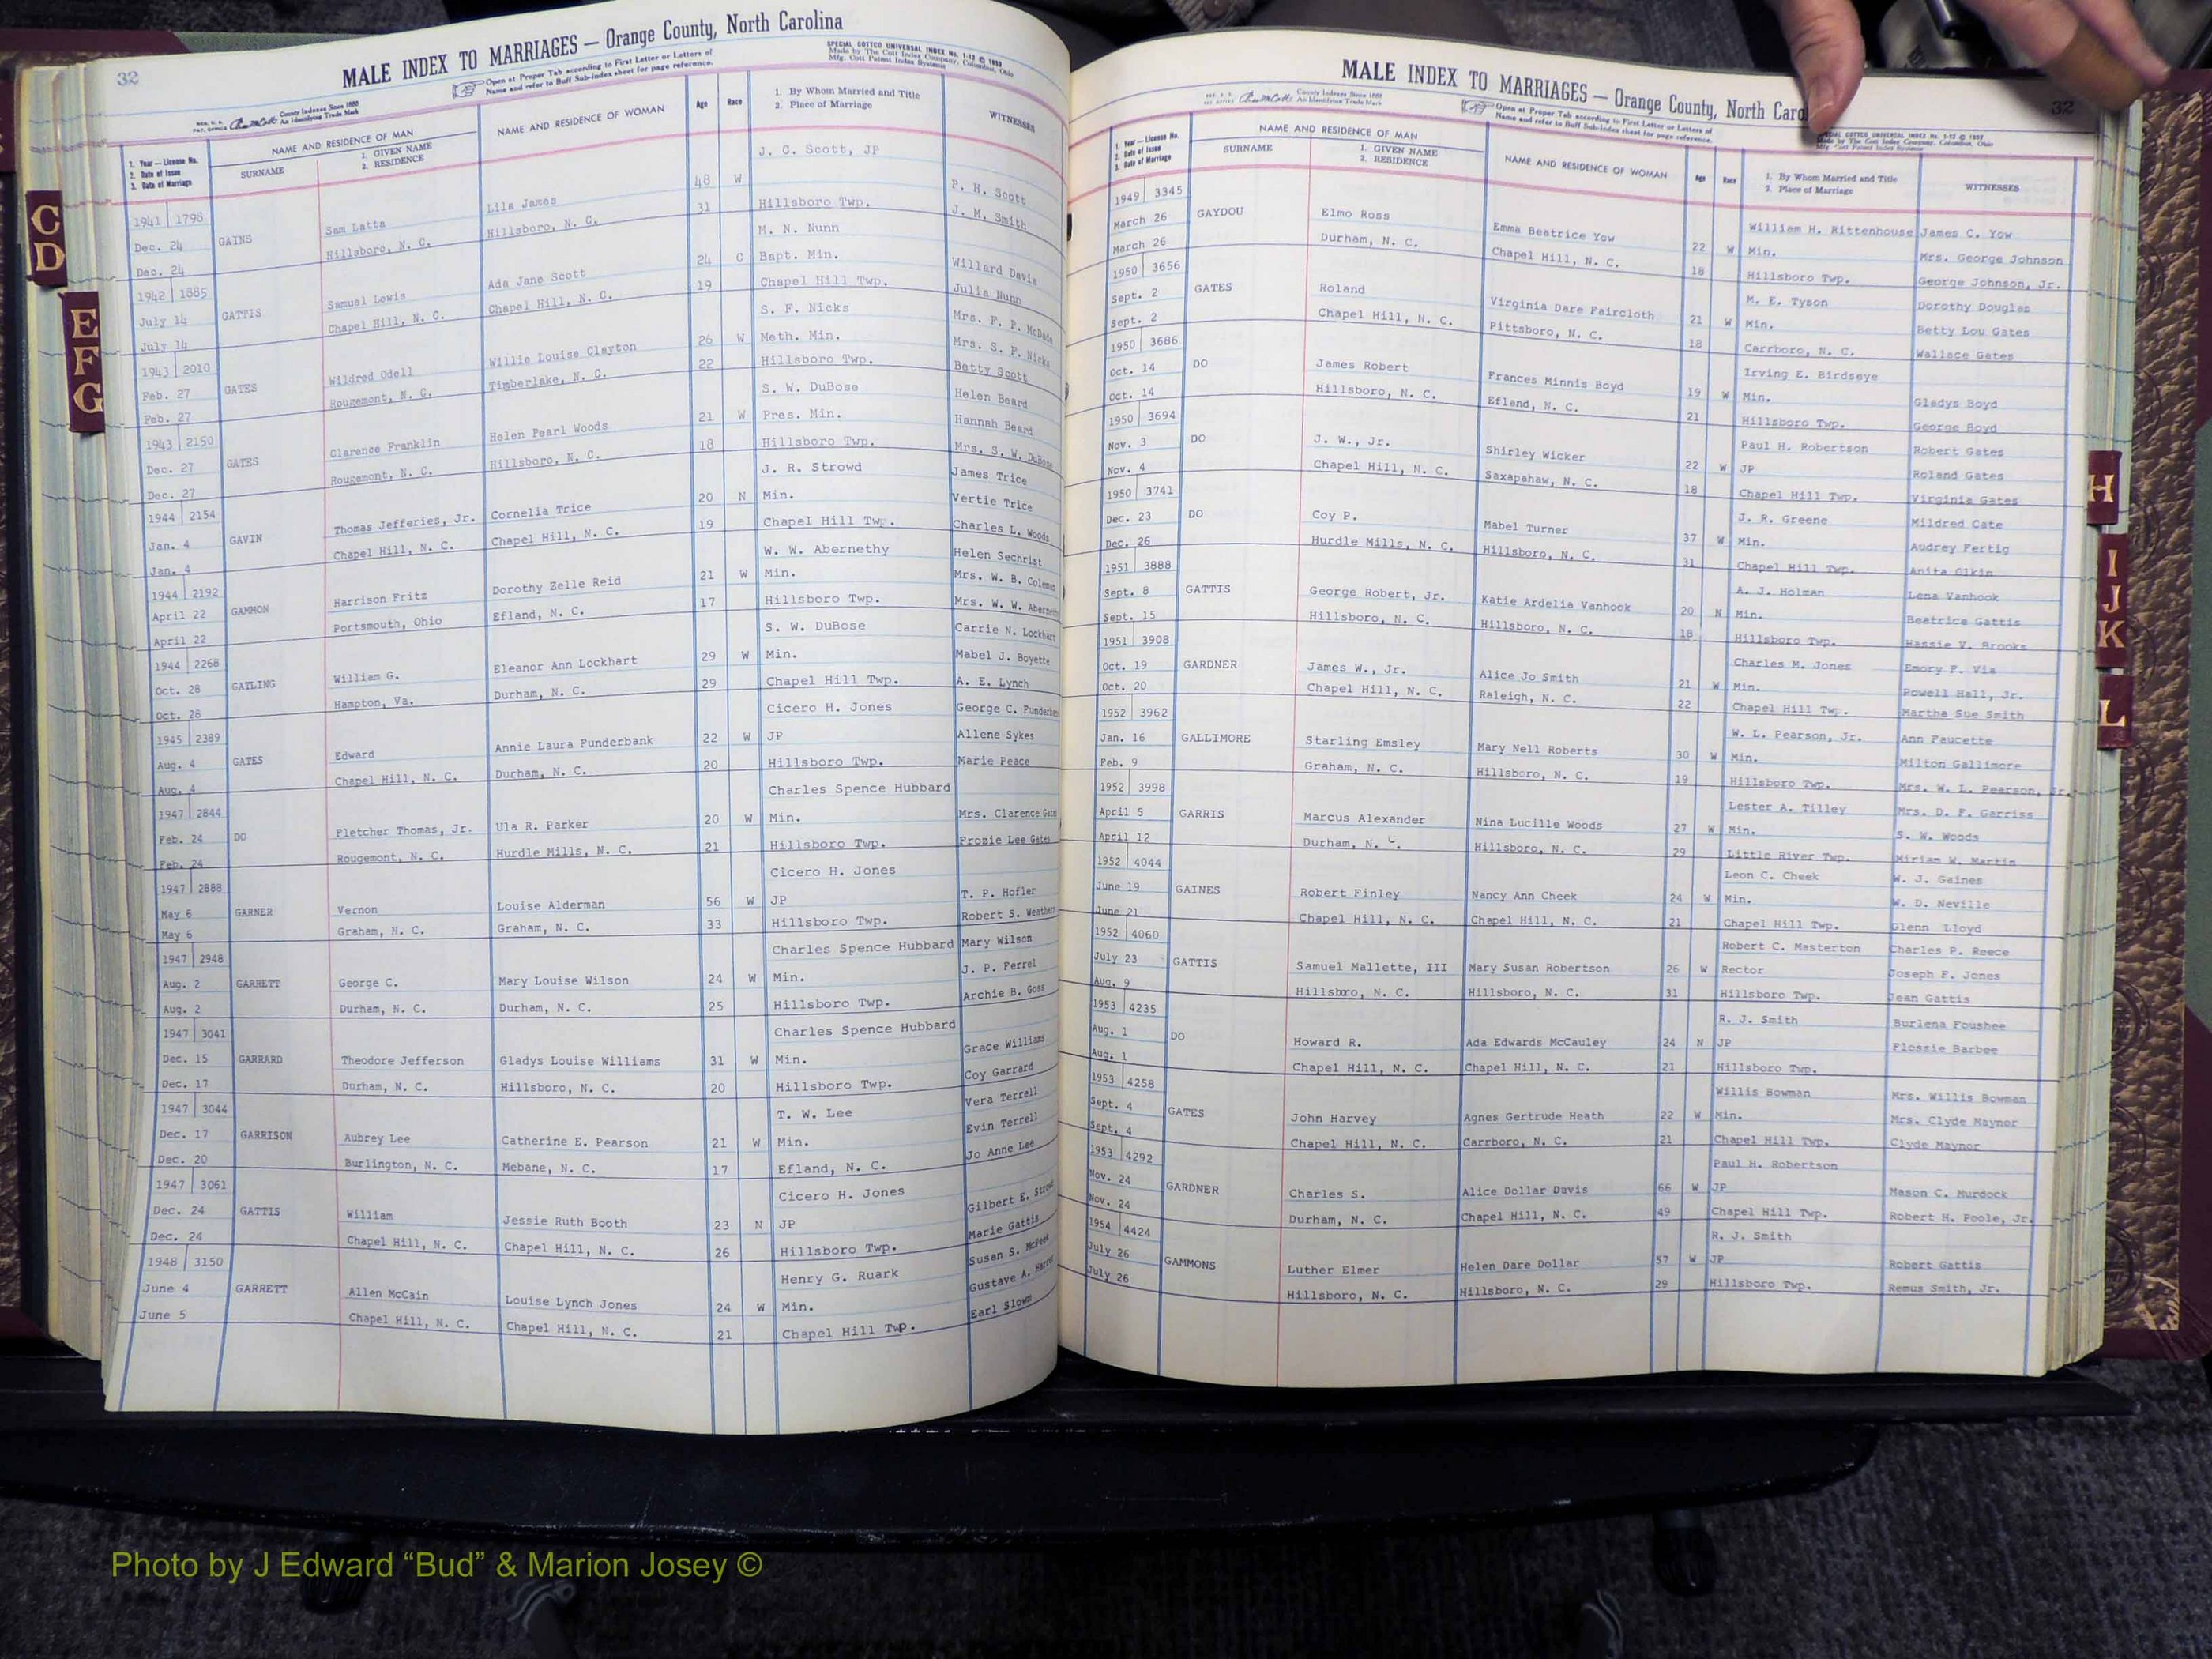 32
MALE INDEX TO MARRIAGES — Orange County, North Carolina
Open at Proper Tab according to First Letter or Letters of
Name and refer to Buff Sub-index sheet for page reference.
SPECIAL COTTCO UNIVERSAL INDEX No. 1-12 © 1952
Made by The Cott Index Company, Columbus, Ohio
Mfg. Cott Patent Index Systems
County Indexes Since 1888
An Identifying Trade Mark
1. Year — License No.
2. Date of Issue
3. Date of Marriage
NAME AND RESIDENCE OF MAN
SURNAME
1. GIVEN NAME
2. RESIDENCE
NAME AND RESIDENCE OF WOMAN
Age
Race
1. By Whom Married and Title
2. Place of Marriage
WITNESSES
1941 1798 J. C. Scott, JP
Dec. 24 GAINS Sam Latta Lila James 48 W P. H. Scott
Dec. 24 Hillsboro, N. C. Hillsboro, N. C. 31 Hillsboro Twp. J. M. Smith
1942 1885 M. N. Nunn
July 14 GATTIS Samuel Lewis Ada Jane Scott 24 C Bapt. Min. Willard Davis
July 14 Chapel Hill, N. C. Chapel Hill, N. C. 19 Chapel Hill Twp. Julia Nunn
1943 2010 S. F. Nicks Mrs. F. P. McDade
Feb. 27 GATES Wildred Odell Willie Louise Clayton 26 W Meth. Min. Mrs. S. P. Nicks
Feb. 27 Rougemont, N. C. Timberlake, N. C. 22 Hillsboro Twp. Betty Scott
1943 2150 S. W. DuBose Helen Beard
Dec. 27 GATES Clarence Franklin Helen Pearl Woods 21 W Pres. Min. Hannah Beard
Dec. 27 Rougemont, N. C. Hillsboro, N. C. 18 Hillsboro Twp. Mrs. S. W. DuBose
1944 2154 J. R. Strowd James Trice
Jan. 4 GAVIN Thomas Jefferies, Jr. Cornelia Trice 20 N Min. Vertie Trice
Jan. 4 Chapel Hill, N. C. Chapel Hill, N. C. 19 Chapel Hill Twp. Charles L. Woods
1944 2192 W. W. Abernethy Helen Sechrist
April 22 GAMMON Harrison Fritz Dorothy Zelle Reid 21 W Min. Mrs. W. B. Coleman
April 22 Portsmouth, Ohio Efland, N. C. 17 Hillsboro Twp. Mrs. W. W.
1944 2268 S. W. DuBose Carrie N. Lockhart
Oct. 28 GATLING William G. Eleanor Ann Lockhart 29 W Min. Mabel J. Boyette
Oct. 28 Hampton, Va. Durham, N. C. 29 Chapel Hill Twp. A. E. Lynch
1945 2389 Cicero H. Jones George C.
Aug. 4 GATES Edward Annie Laura Funderbank 22 W JP Allene Sykes
Aug. 4 Chapel Hill, N. C. Durham, N. C. 20 Hillsboro Twp. Marie Peace
1947 2844 Charles Spence Hubbard
Feb. 24 DO Fletcher Thomas, Jr. Ula R. Parker 20 W Min. Mrs. Clarence Gates
Feb. 24 Rougemont, N. C. Hurdle Mills, N. C. 21 Hillsboro Twp. Frozie Lee Gates
1947 2888 Cicero H. Jones
May 6 GARNER Vernon Louise Alderman 56 W JP T. P. Hofler
May 6 Graham, N. C. Graham, N. C. 33 Hillsboro Twp. Robert S.
1947 2948 Charles Spence Hubbard Mary Wilson
Aug. 2 GARRETT George C. Mary Louise Wilson 24 W Min. J. P. Ferrel
Aug. 2 Durham, N. C. Durham, N. C. 25 Hillsboro Twp. Archie B. Goss
1947 3041 Charles Spence Hubbard
Dec. 15 GARRARD Theodore Jefferson Gladys Louise Williams 31 W Min. Grace Williams
Dec. 17 Durham, N. C. Hillsboro, N. C. 20 Hillsboro Twp. Coy Garrard
1947 3044 T. W. Lee Vera Terrell
Dec. 17 GARRISON Aubrey Lee Catherine E. Pearson 21 W Min. Evin Terrell
Dec. 20 Burlington, N. C. Mebane, N. C. 17 Efland, N. C. Jo Anne Lee
1947 3061 Cicero H. Jones
Dec. 24 GATTIS William Jessie Ruth Booth 23 N JP Gilbert E.
Dec. 24 Chapel Hill, N. C. Chapel Hill, N. C. 26 Hillsboro Twp. Marie Gattis
1948 3150 Henry G. Ruark Susan S.
June 4 GARRETT Allen McCain Louise Lynch Jones 24 W Min. Gustave A.
June 5 Chapel Hill, N. C. Chapel Hill, N. C. 21 Chapel Hill Twp. Earl Slown
MALE INDEX TO MARRIAGES — Orange County, North Caro
32
Open at Proper Tab according to First Letter or Letters of
Name and refer to Buff Sub-index sheet for page reference.
County Indexes Since 1888
An Identifying Trade Mark
1. Year — License No.
2. Date of Issue
3. Date of Marriage
NAME AND RESIDENCE OF MAN
SURNAME
1. GIVEN NAME
2. RESIDENCE
NAME AND RESIDENCE OF WOMAN
Age
Race
1. By Whom Married and Title
2. Place of Marriage
WITNESSES
1949 3345 William H. Rittenhouse James C. Yow
March 26 GAYDOU Elmo Ross Emma Beatrice Yow 22 W Min. Mrs. George Johnson
March 26 Durham, N. C. Chapel Hill, N. C. 18 Hillsboro Twp. George Johnson, Jr.
1950 3656 M. E. Tyson Dorothy Douglas
Sept. 2 GATES Roland Virginia Dare Faircloth 21 W Min. Betty Lou Gates
Sept. 2 Chapel Hill, N. C. Pittsboro, N. C. 18 Carrboro, N. C. Wallace Gates
1950 3686 Irving E. Birdseye
Oct. 14 DO James Robert Frances Minnis Boyd 19 W Min. Gladys Boyd
Oct. 14 Hillsboro, N. C. Efland, N. C. 21 Hillsboro Twp. George Boyd
1950 3694 Paul H. Robertson Robert Gates
Nov. 3 DO J. W., Jr. Shirley Wicker 22 W JP Roland Gates
Nov. 4 Chapel Hill, N. C. Saxapahaw, N. C. 18 Chapel Hill Twp. Virginia Gates
1950 3741 J. R. Greene Mildred Cate
Dec. 23 DO Coy P. Mabel Turner 37 W Min. Audrey Fertig
Dec. 26 Hurdle Mills, N. C. Hillsboro, N. C. 31 Chapel Hill Twp. Anita Olkin
1951 3888 A. J. Holman Lena Vanhook
Sept. 8 GATTIS George Robert, Jr. Katie Ardelia Vanhook 20 N Min. Beatrice Gattis
Sept. 15 Hillsboro, N. C. Hillsboro, N. C. 18 Hillsboro Twp. Hassie V. Brooks
1951 3908 Charles M. Jones Emory F. Via
Oct. 19 GARDNER James W., Jr. Alice Jo Smith 21 W Min. Powell Hall, Jr.
Oct. 20 Chapel Hill, N. C. Raleigh, N. C. 22 Chapel Hill Twp. Martha Sue Smith
1952 3962 W. L. Pearson, Jr. Ann Faucette
Jan. 16 GALLIMORE Starling Emsley Mary Nell Roberts 30 W Min. Milton Gallimore
Feb. 9 Graham, N. C. Hillsboro, N. C. 19 Hillsboro Twp. Mrs. W. L. Pearson, Jr.
1952 3998 Lester A. Tilley Mrs. D. F. Garriss
April 5 GARRIS Marcus Alexander Nina Lucille Woods 27 W Min. S. W. Woods
April 12 Durham, N. C. Hillsboro, N. C. 29 Little River Twp. Miriam W. Martin
1952 4044 Leon C. Cheek W. J. Gaines
June 19 GAINES Robert Finley Nancy Ann Cheek 24 W Min. W. D. Neville
June 21 Chapel Hill, N. C. Chapel Hill, N. C. 21 Chapel Hill Twp. Glenn Lloyd
1952 4060 Robert C. Masterton Charles P. Reece
July 23 GATTIS Samuel Mallette, III Mary Susan Robertson 26 W Rector Joseph F. Jones
Aug. 9 Hillsbro, N. C. Hillsboro, N. C. 31 Hillsboro Twp. Jean Gattis
1953 4235 R. J. Smith Burlena Foushee
Aug. 1 DO Howard R. Ada Edwards McCauley 24 N JP Flossie Barbee
Aug. 1 Chapel Hill, N. C. Chapel Hill, N. C. 21 Hillsboro Twp.
1953 4258 Willis Bowman Mrs. Willis Bowman
Sept. 4 GATES John Harvey Agnes Gertrude Heath 22 W Min. Mrs. Clyde Maynor
Sept. 4 Chapel Hill, N. C. Carrboro, N. C. 21 Chapel Hill Twp. Clyde Maynor
1953 4292 Paul H. Robertson
Nov. 24 GARDNER Charles S. Alice Dollar Davis 66 W JP Mason C. Murdock
Nov. 24 Durham, N. C. Chapel Hill, N. C. 49 Chapel Hill Twp. Robert H. Poole, Jr.
1954 4424 R. J. Smith
July 26 GAMMONS Luther Elmer Helen Dare Dollar 57 W JP Robert Gattis
July 26 Hillsboro, N. C. Hillsboro, N. C. 29 Hillsboro Twp. Remus Smith, Jr.
C
D
E
F
G
H
I
J
K
L
Photo by J Edward “Bud” & Marion Josey ©